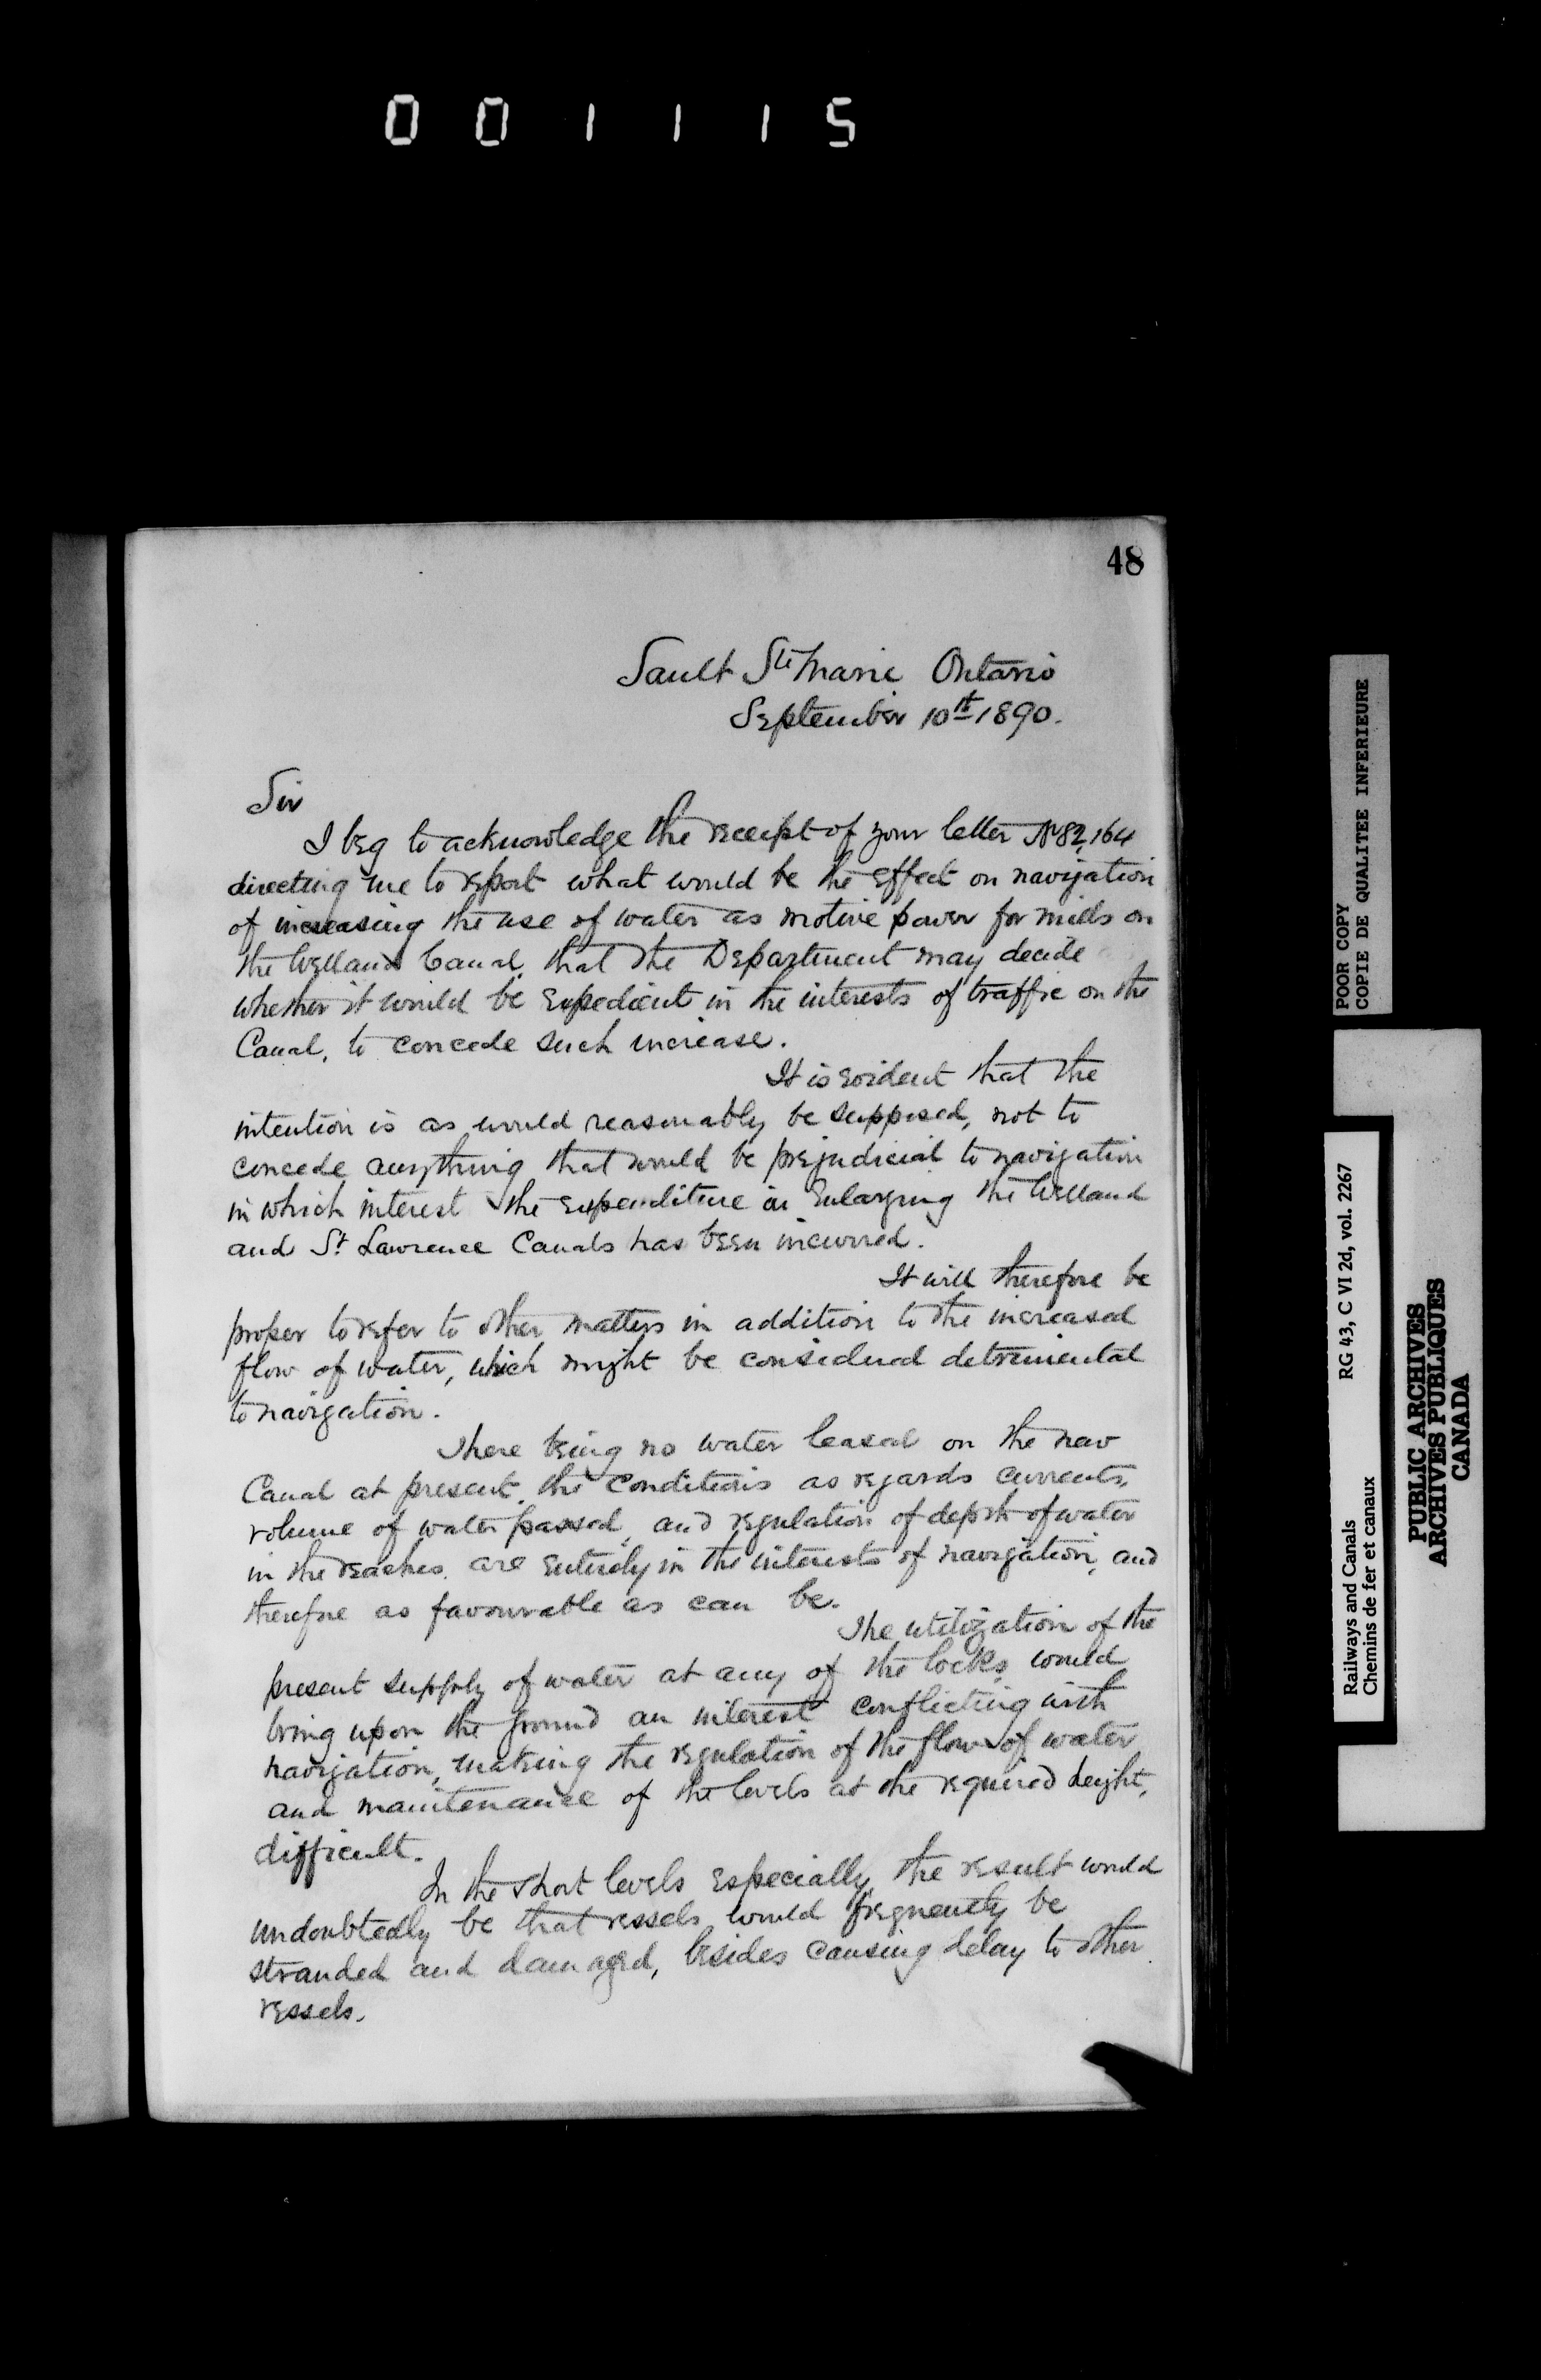 001115
48
Sault Ste Marie Ontario
September 10th 1890.
Sir
I beg to acknowledge the receipt of your letter No 82,164
directing me to report what would be the effect on navigation
of increasing the use of water as motive power for mills on
the Welland Canal, that the Department may decide
whether it would be expedient in the interests of traffic on the
Canal, to concede such increase.
It is evident that the
intention is as would reasonably be supposed, not to
concede anything that would be prejudicial to navigation
in which interest the expenditure in enlarging the Welland
and St Lawrence Canals has been incurred.
It will therefore be
proper to refer to other matters in addition to the increased
flow of water, which might be considered detrimental
to navigation.
There being no water leased on the new
Canal at present, the conditions as regards currents,
volume of water passed, and regulation of depth of water
in the reaches, are entirely in the interests of navigation, and
therefore as favourable as can be.
The utilization of the
present supply of water at any of the locks, would
bring upon the ground an interest conflicting with
navigation, making the regulation of the flow of water
and maintenance of the levels at the required height,
difficult.
In the short levels especially, the result would
undoubtedly be that vessels would frequently be
stranded and damaged, besides causing delay to other
vessels.
POOR COPY
COPIE DE QUALITEE INFERIEURE
Railways and Canals RG 43, C VI 2d, vol. 2267
Chemins de fer et canaux
PUBLIC ARCHIVES
ARCHIVES PUBLIQUES
CANADA